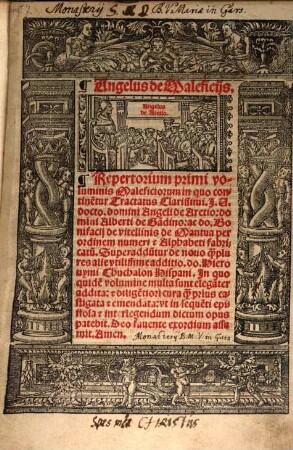 Monasterij S. B. V. Mariæ in Gars.
¶ Angelus de Maleficijs.
Angelus
de Aretio.
¶ Repertorium primi vo-
luminis Maleficiorum in quo con-
tinẽtur Tractatus Clarissimi. J. U.
docto. domini Angeli de Aretio: do
mini Alberti de Gãdino: ac do. Bo
nifacij de vitellinis de Mantua per
ordinem numeri ⁊ Alphabeti fabri-
catũ. Superaddũtur de nouo q̃plu
res alie vtilissime additio. do. Hiero
nymi Chuchalon Hispani. In quo
quidẽ volumine multa sunt elegãter
addita: ⁊ diligẽtiori cura q̃ prius ca-
stigata ⁊ emendata: vt in sequẽti epi-
stola ⁊ inter legendum dictum opus
patebit. Deo fauente exordium assu
mit. Amen.
Monasterij B. M. V. in Gars
Spes mea CHRISTUS